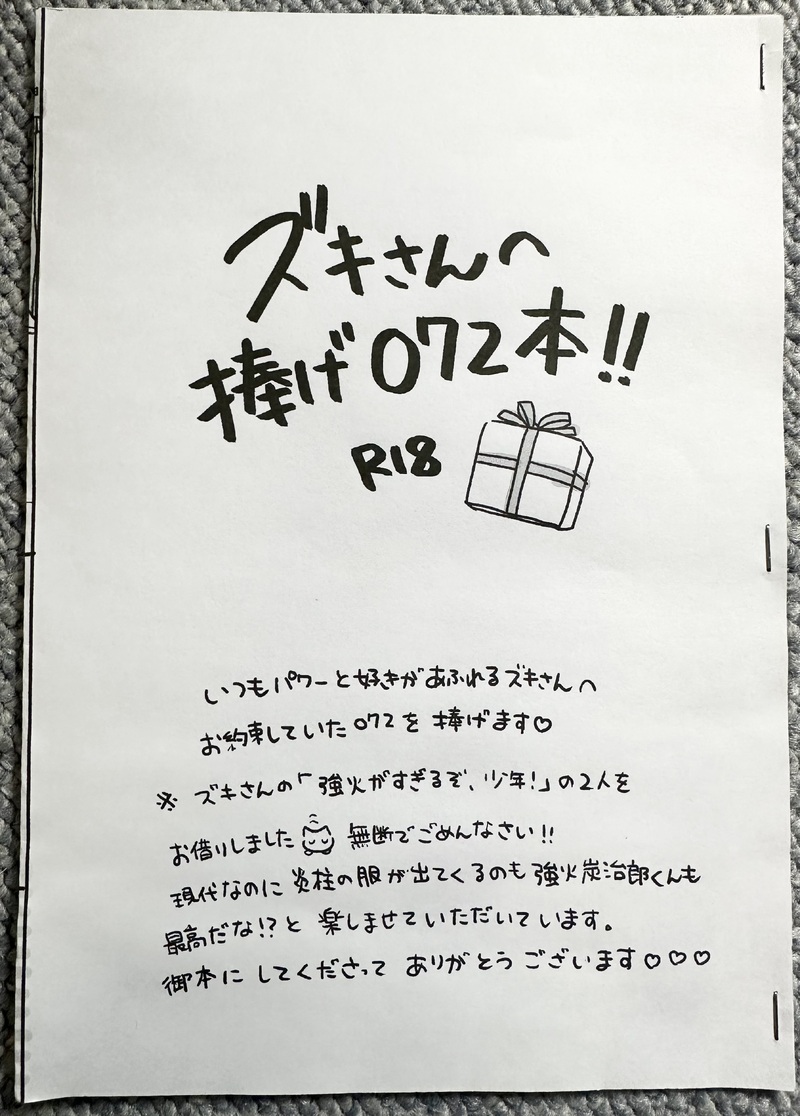 ズキさんへ
捧げ072本!!
R18
いつもパワーと好きがあふれるズキさんへ
お約束していた072を捧げます♡
※ ズキさんの「強火がすぎるぞ、少年!」の2人を
お借りしました 無断でごめんなさい!!
現代なのに炎柱の服が出てくるのも強火炭治郎くんも
最高だな!?と楽しませていただいています。
御本にしてくださってありがとうございます♡♡♡